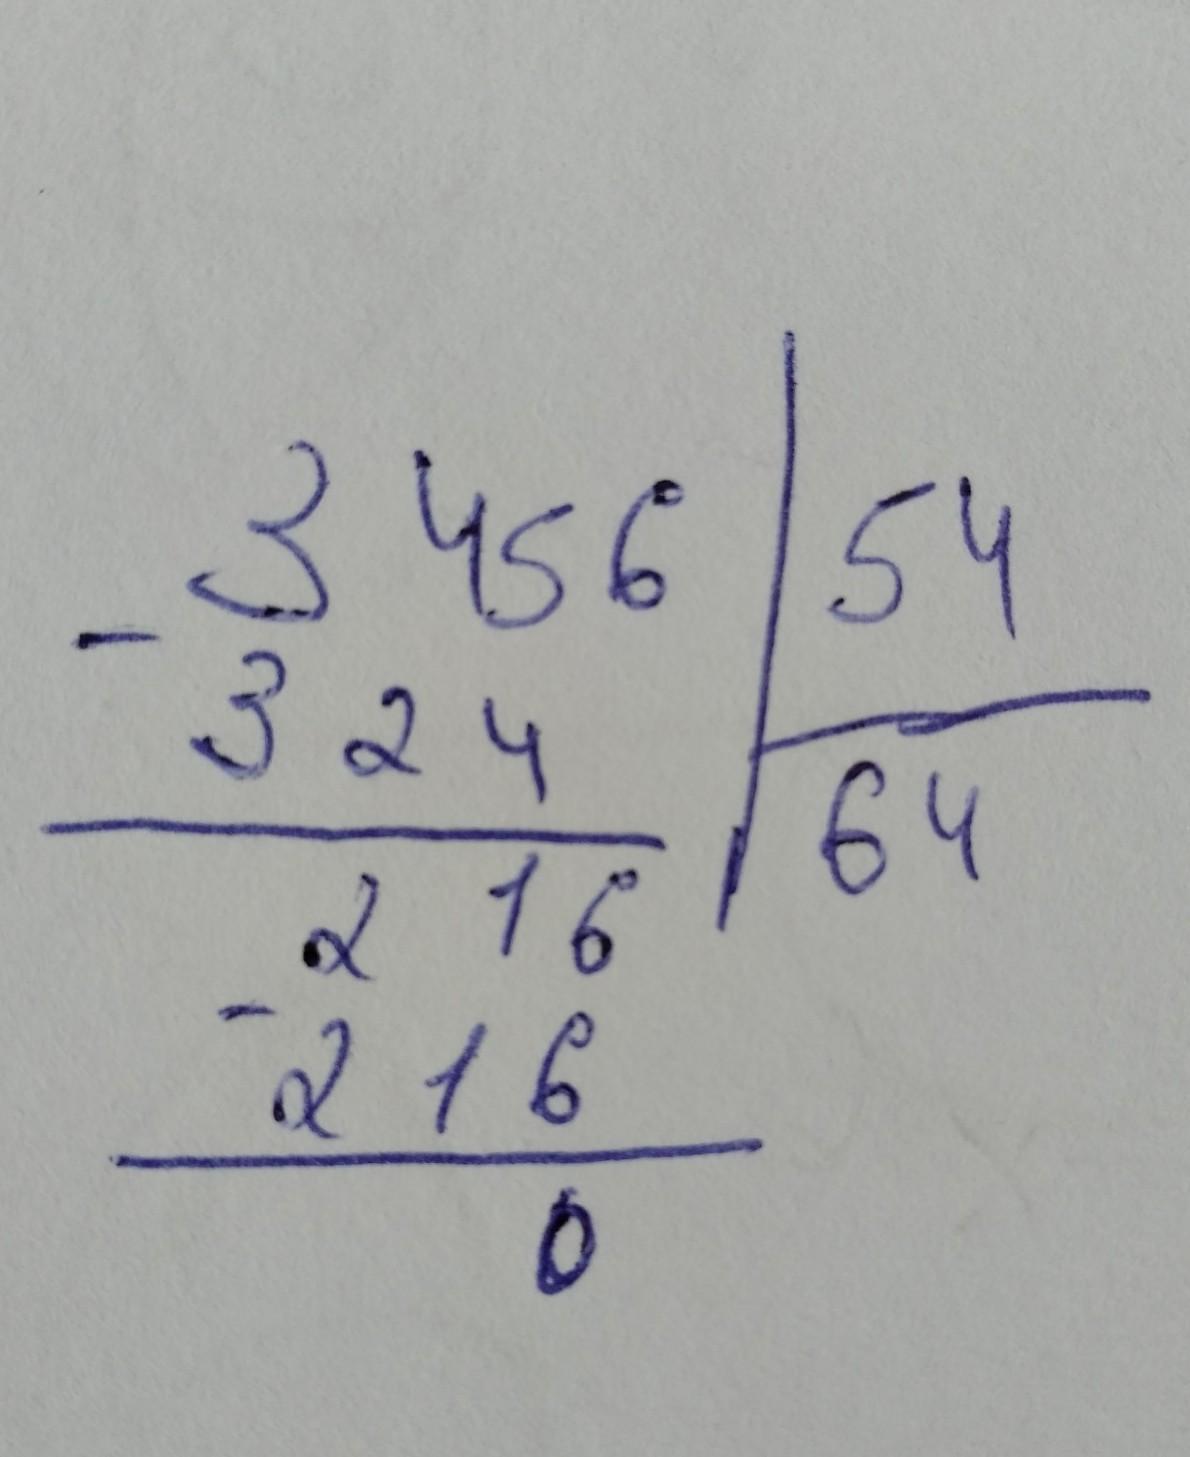 3456 | 54
- 324 | 64
216
- 216
0